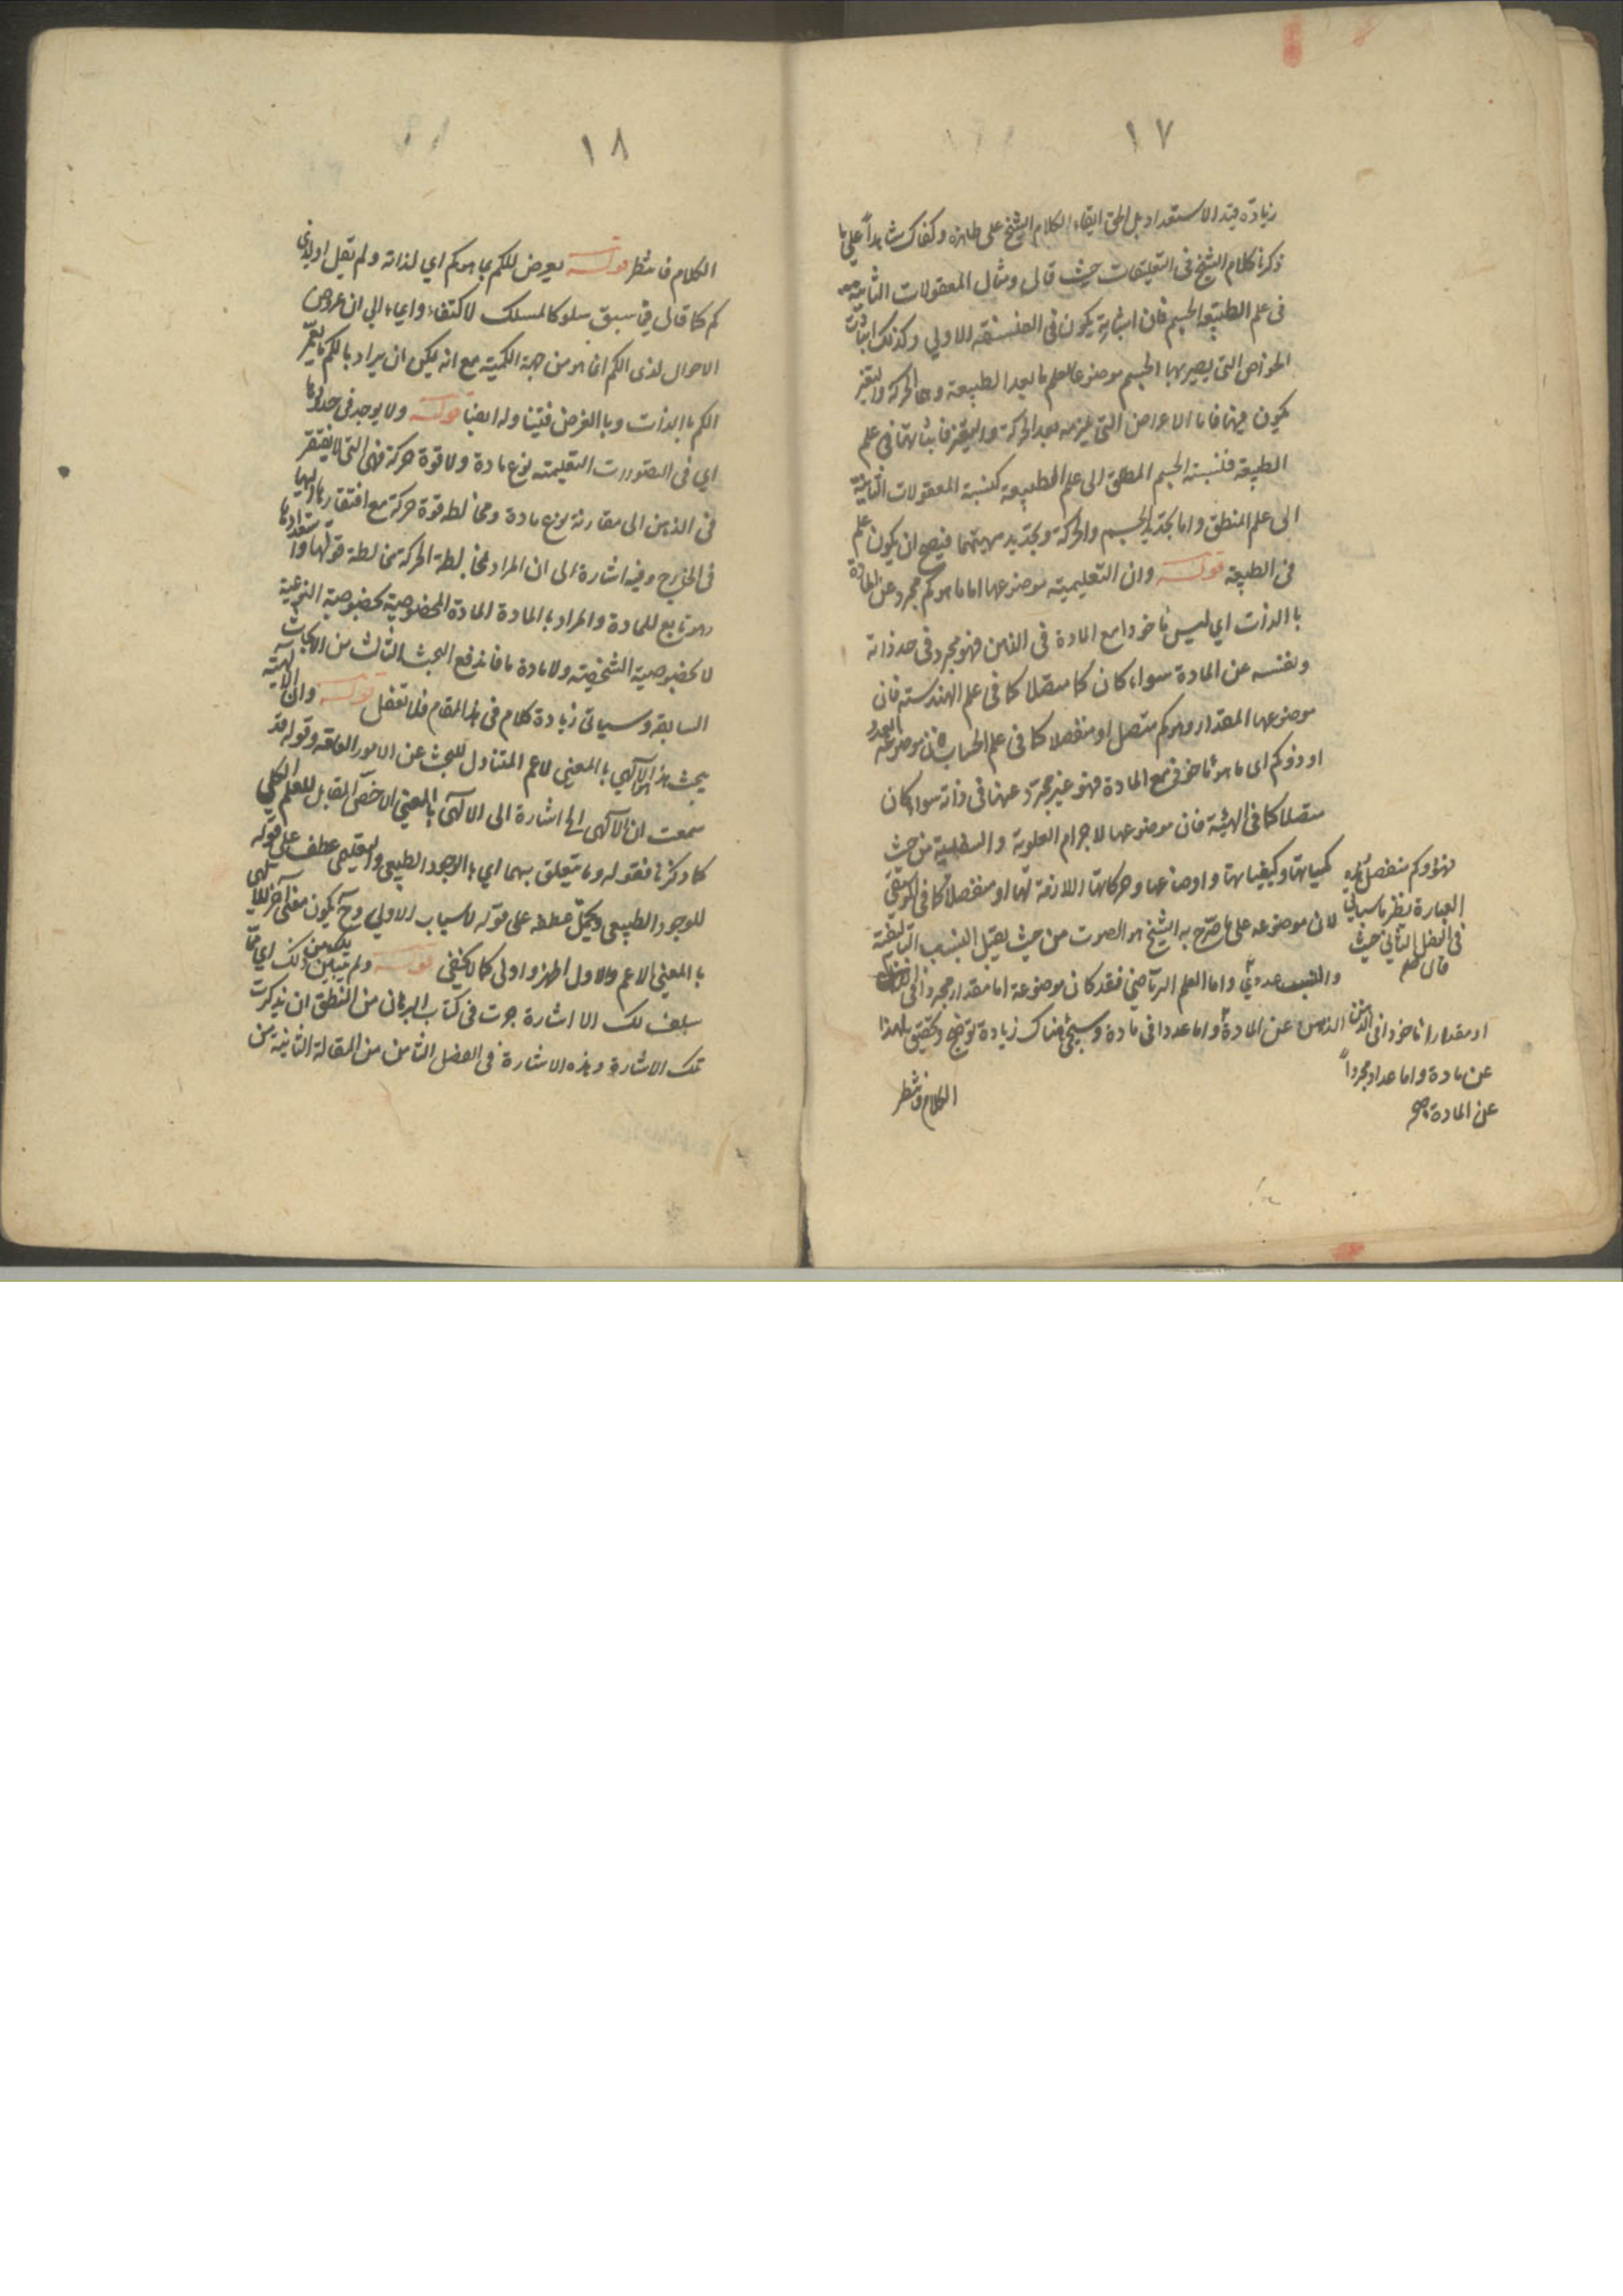 ١٧
زيادة قيد الاستعداد بل الحق ابقاء الكلام الشيخ على ظاهره وكفاك شاهداً على ما
ذكرنا كلام الشيخ في التعليقات حيث قال ومثال المعقولات الثانية
في علم الطبيعة الجسم فان اثباته يكون في الفلسفة الاولي وكذلك اثبات
الخواص التي يصير بها الجسم موضوعا لعلم ما بعد الطبيعة وهي الحركة والتغير
يكون فيها فاما الاعراض التي يلزمه بعد الحركة والتغير فاثباتها في علم
الطبيعة فنسبة الجسم المطلق الى علم الطبيعة كنسبة المعقولات الثانية
الى علم المنطق واما تحديد الجسم والحركة وتحديد مهيتهما فيصح ان يكون علم
في الطبيعة قوله وان التعليمية موضوعها اما ما هو كم مجرد عن المادة
بالذات اي ليس ماخوذا مع المادة في الذهن فهو مجرد في حد ذاته
ونفسه عن المادة سواء كان كما متصلا كما في علم الهندسة فان
موضوعها المقدار وهو كم متصل او منفصلا كما في علم الحساب فان موضوعه العدد
او ذو كم اي ما هو ماخوذ مع المادة فهو غير مجرد عنها في ذاته سواء كان
متصلا كما في الهيئة فان موضوعها الاجرام العلوية والسفلية من حيث
كمياتها وكيفياتها واوضاعها وحركاتها اللازمة لها او منفصلا كما في الموسيقي
لان موضوعه على ما صرح به الشيخ هو الصوت من حيث يقبل النسب التاليفية
والنسب عددية واما العلم الرياضي فقد كان موضوعه اما مقدار مجردا في
او مقدارا ماخوذا في الذهن عن المادة واما عددا في مادة وسيجئ هناك زيادة توضيح وتحقيق لهذا
فهو ذو كم منفصل هذه
العبارة نظر ما سياتي
في الفصل الثاني حيث
قال
عن مادة واما عداد مجرداً
عن المادة صح
الكلام فانتظر
١٨
الكلام فانتظر قوله يعرض للكم بما هو كم اي لذاته ولم يقل او لذي
كم كما قال في سبق سلوكا لمسلك الاكتفاء وايماء الي ان عروض
الاحوال لذي الكم انما هو من جهة الكمية مع انه يمكن ان يراد بالكم ما يعم
الكم بالذات وبالعرض فتينا وله ايضا قوله ولا يوجد في حدودها
اي في التصورات التعليمة نوع مادة ولا قوة حركة فهي التي لا يفتقر
في الذهن الى مقارنة نوع مادة ومخالطة قوة حركة مع افتقارها اليها
في الخارج وفيه اشارة الى ان المراد بمخالطة الحركة مخالطة قوتها واستعدادها
وهو تابع للمادة والمراد بالمادة المادة المخصوصة بخصوصية النوعية
لا بخصوصية الشخصية ولا مادة ما فاندفع البحث الثالث من الابحاث
السابقة وسياتي زيادة كلام في هذا المقام فلا تغفل قوله وان الالهية
يبحث هذا الالهي بالمعنى الاعم المتناول للبحث عن الامور العامة وقوله قد
سمعت ان الالهي الخ اشارة الى الالهي بالمعنى الاخص المقابل للعلم الكلي
كما ذكرنا فقوله وما يتعلق بهما اي بالوجود الطبيعي والتعليمي عطف على قوله
للوجود الطبيعي ويحتمل عطفه على قوله الاسباب الاولي وح يكون معنى اخر للالهي
بالمعنى الاعم والاول اظهر واولى كما لا يخفي قوله ولم يتبين ذلك اي مما
سلف لك الا اشارة جرت في كتاب البرهان من المنطق ان تذكرت
تلك الاشارة وهذه الاشارة في الفصل الثامن من المقالة الثانية من